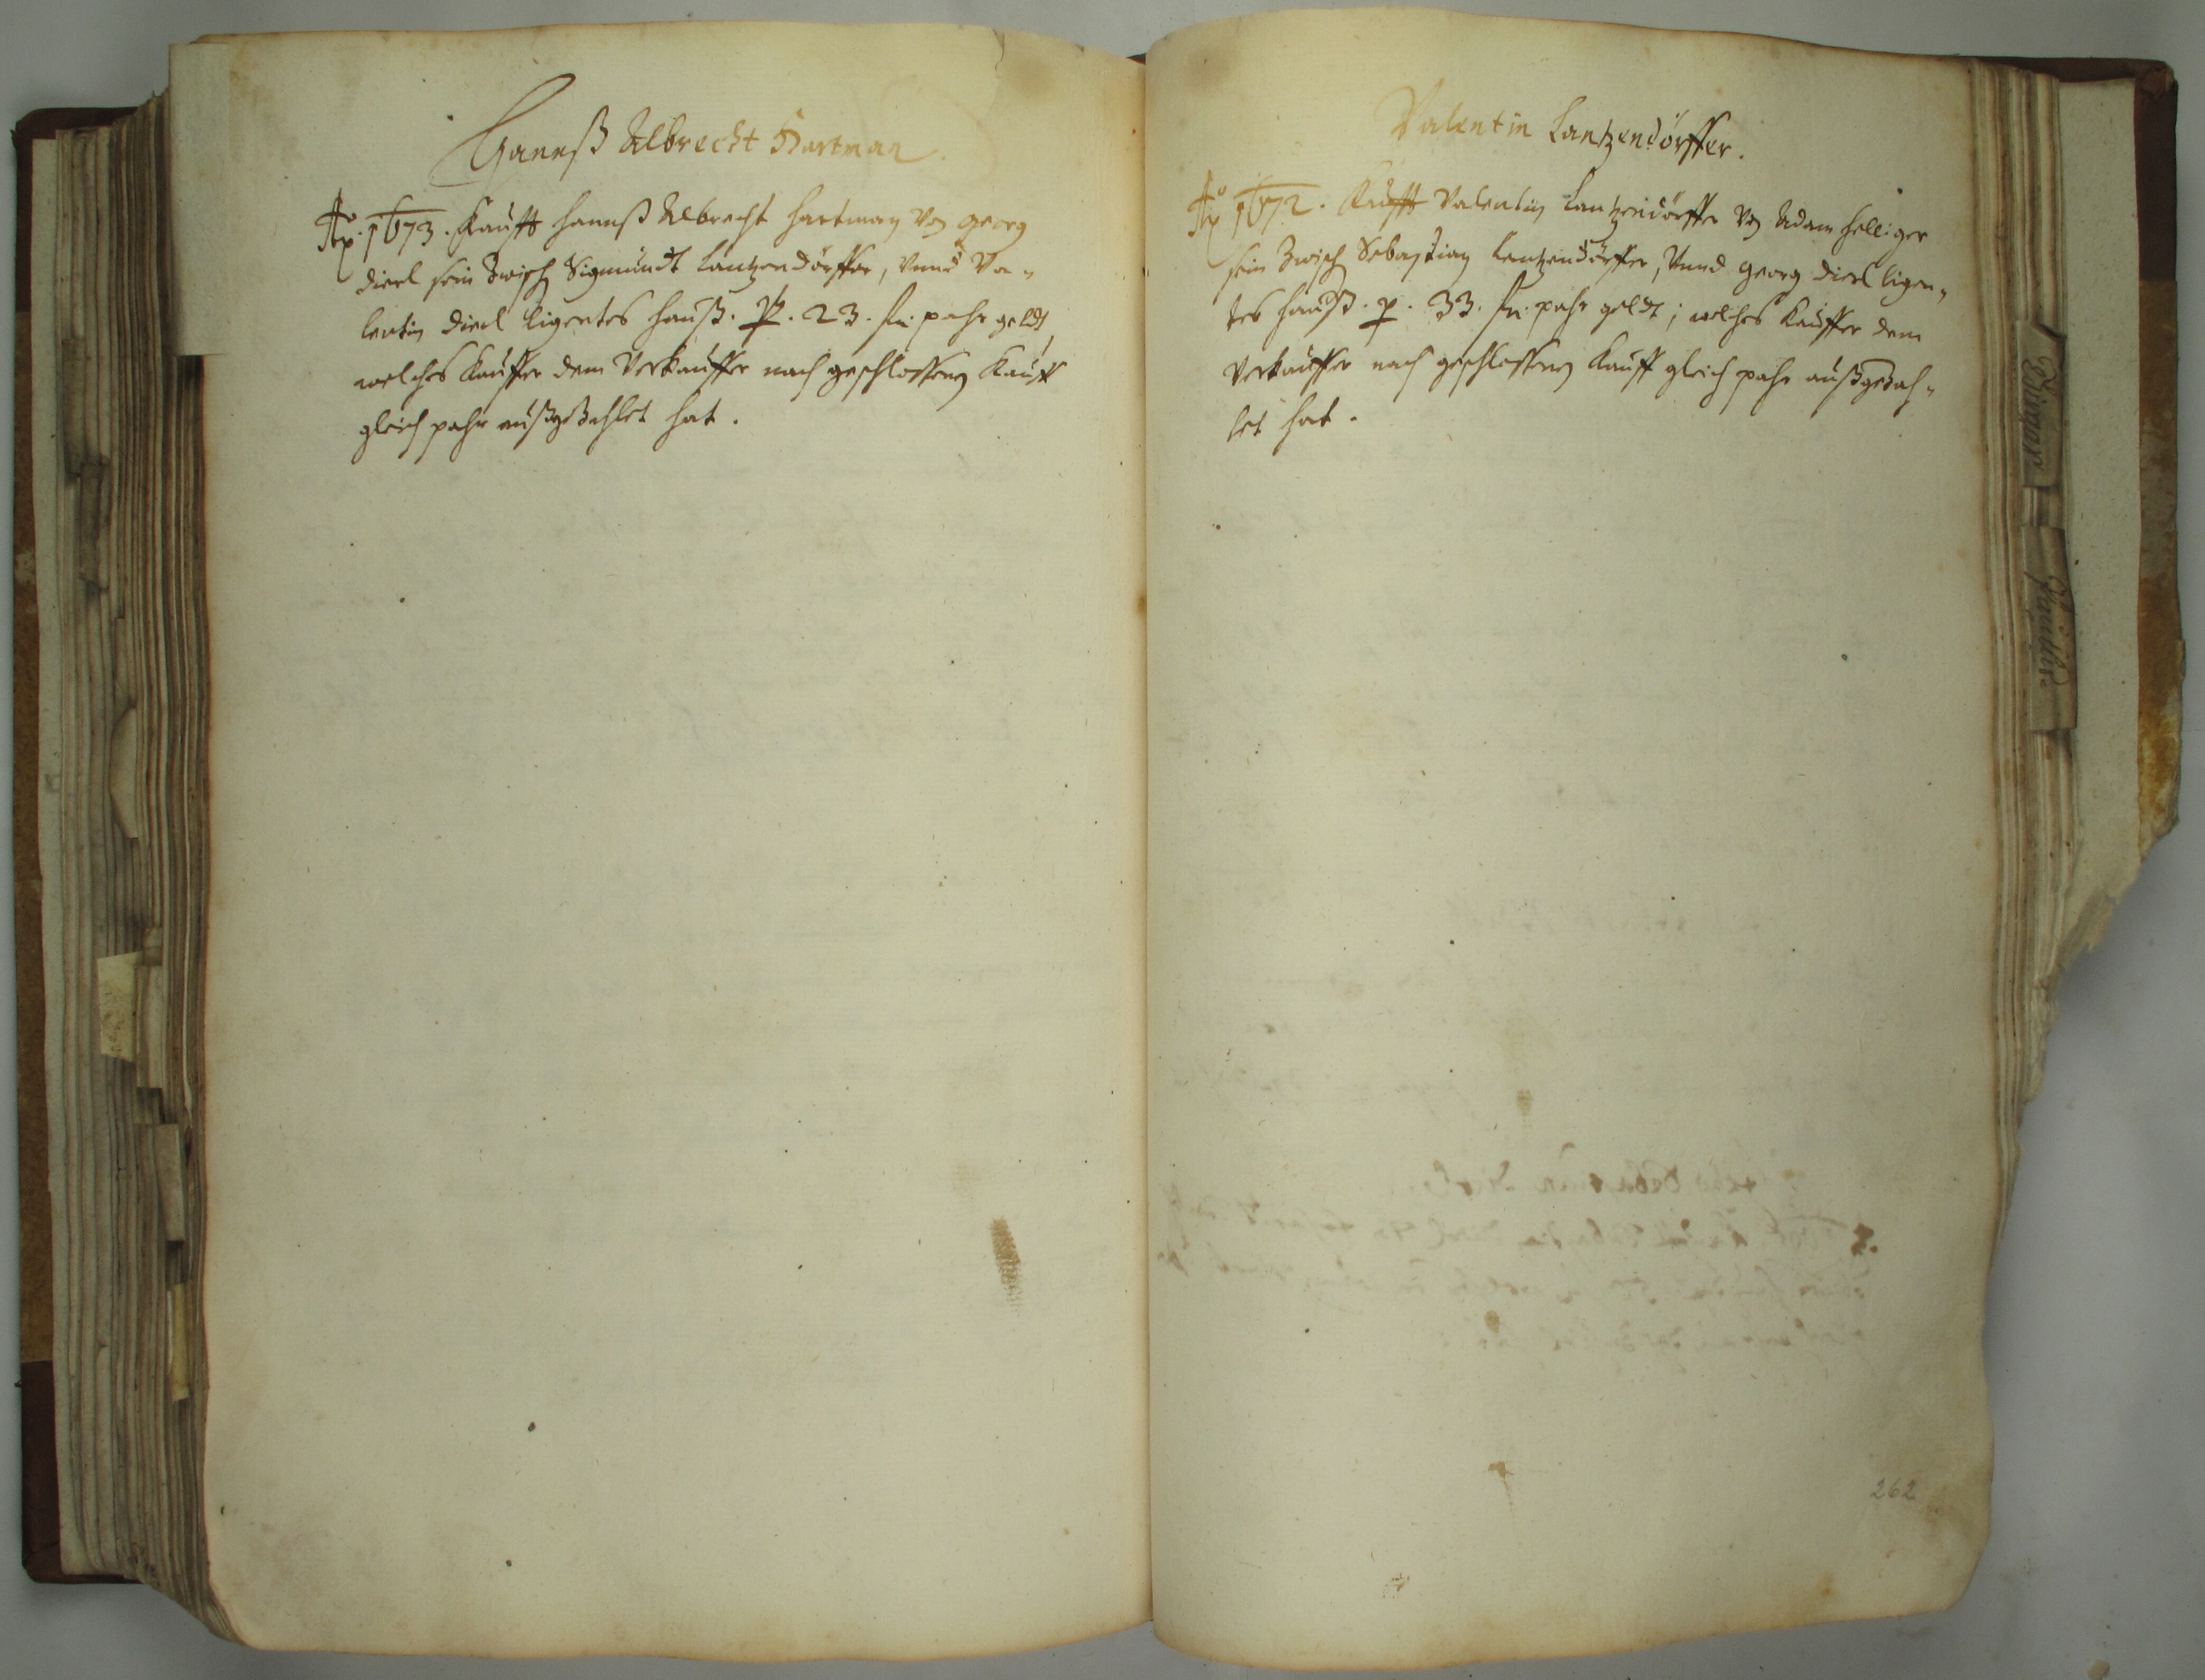 Hannß Albrecht Hartman.
Ao. 1673. Kaufft Hannß Albrecht Hartman von Georg
Dierl sein Zwisch Sigmundt Lantzendörffer, Vnnd Va-
lentin Dierl ligentes Hauß. p. 23. fl. pahr geldt,
welches Kauffer dem Verkauffer nach geschlossenen Kauff
gleich pahr außgezahlet hat.
Valentin Lantzendörffer.
Ao 1672. Kaufft Valentin Lantzendörffer von Adam Helliger
sein Zwisch Sebastian Lantzendörffer, Vnnd Georg Dierl ligen-
tes Hauß. p. 33. fl. pahr geldt; welches Kauffer dem
Verkauffer nach geschlossenen Kauff gleich pahr außgezah-
let hat.
262